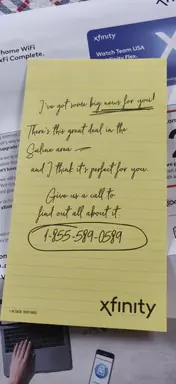 home WiFi
xFi Complete.
xfinity
Watch Team USA
I've got some big news for you!
There's this great deal in the
Saline area
and I think it's perfect for you.
Give us a call to
find out all about it.
1-855-589-0589
xfinity